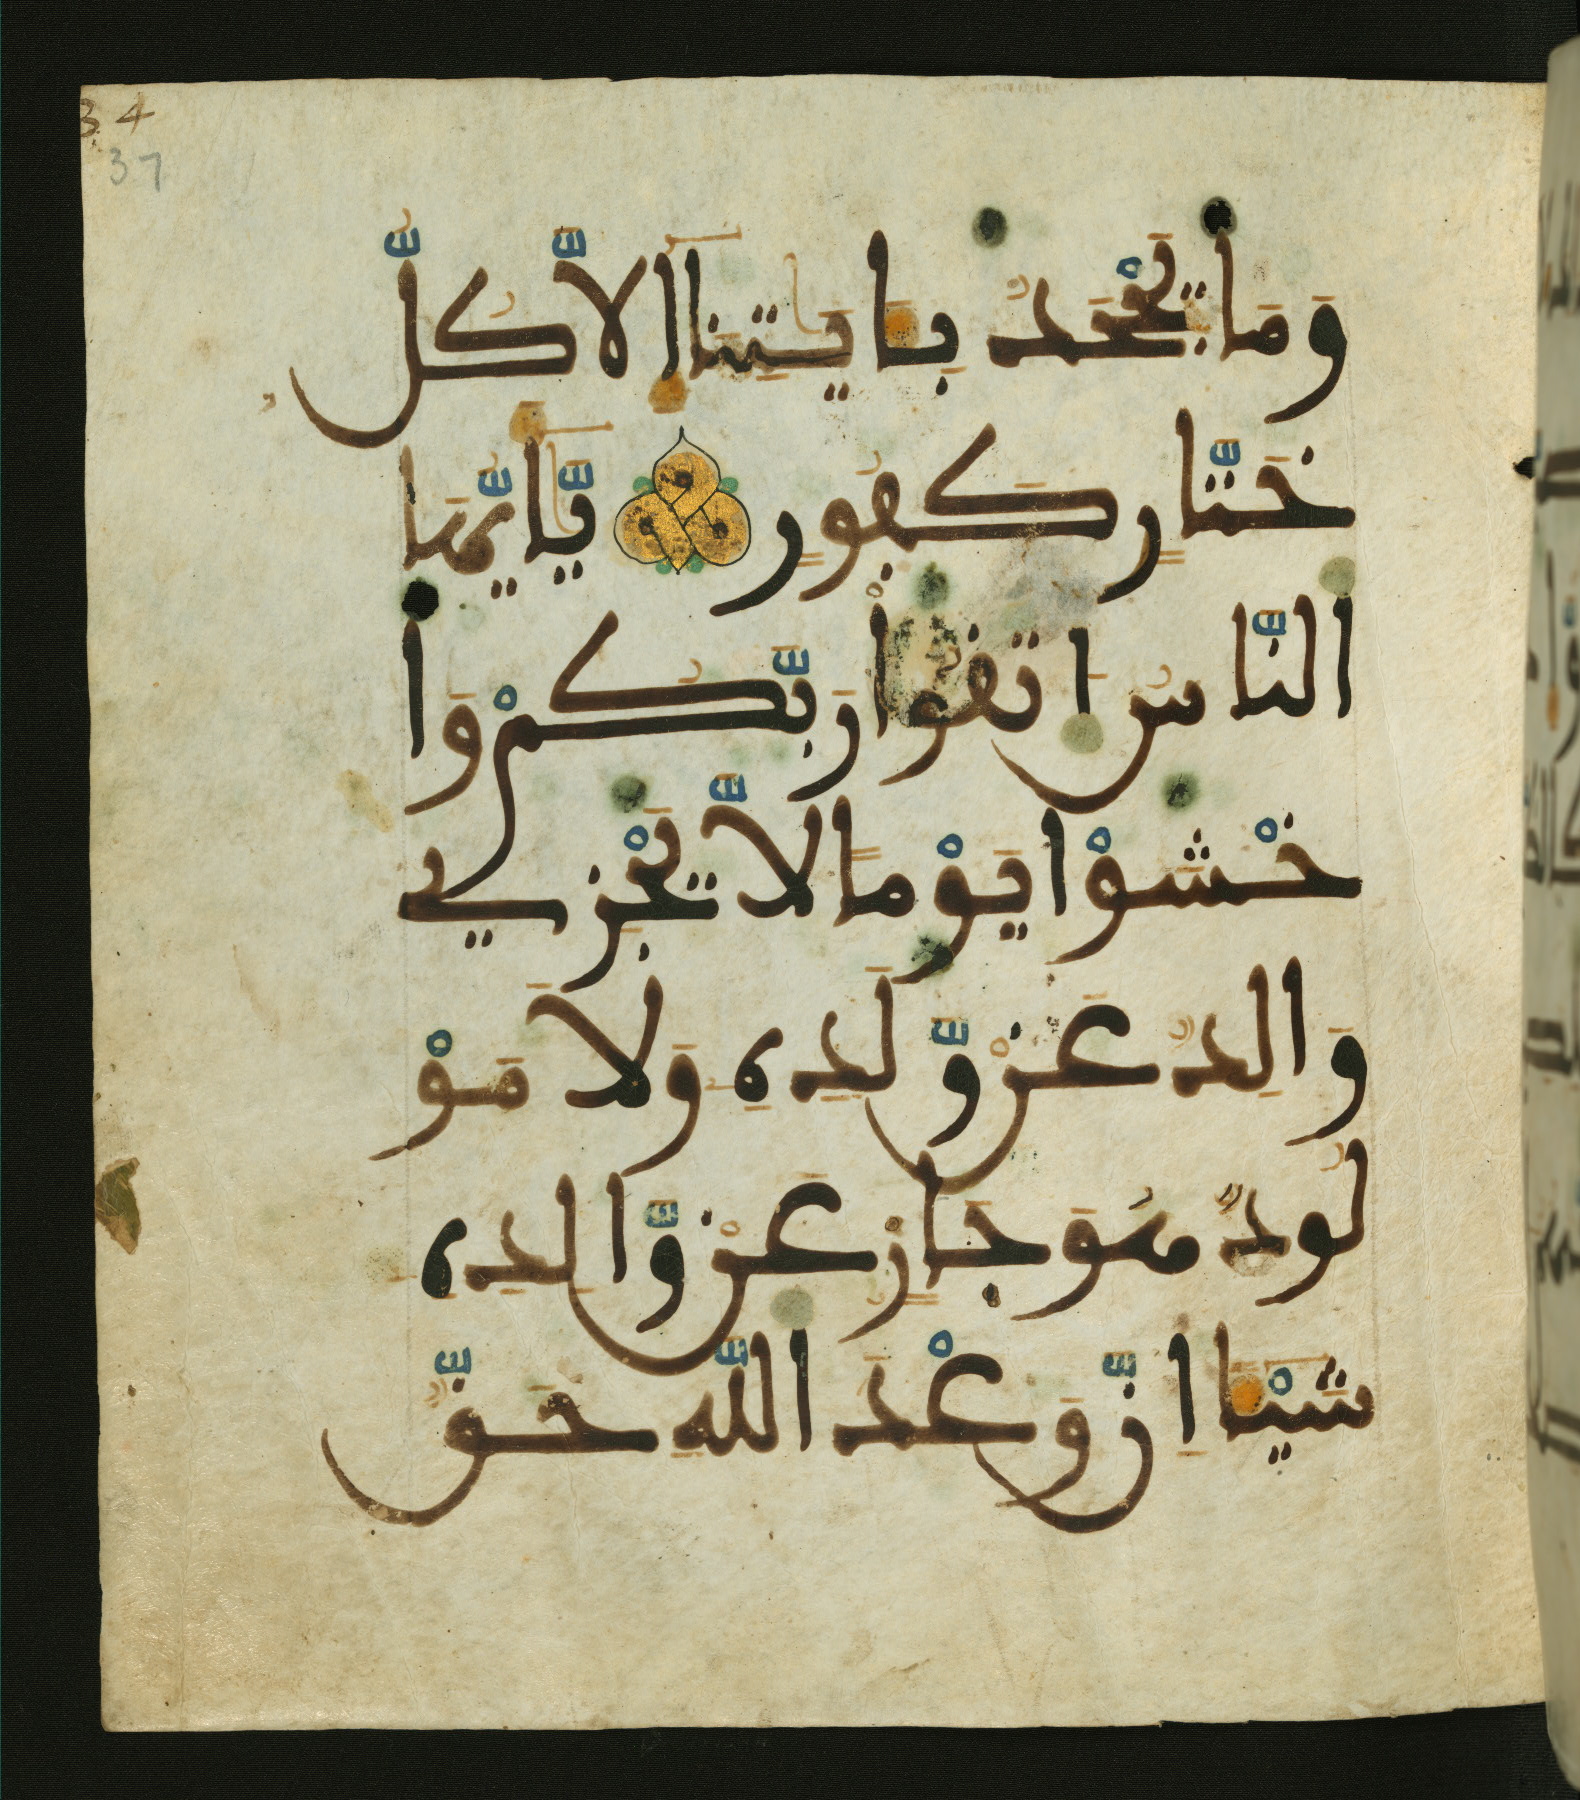 34
37
وَمَا يَجْحَدُ بِـَٔايَٰتِنَآ إِلَّا كُلُّ
خَتَّارٍ كَفُورٍ يَٰٓأَيُّهَا
ٱلنَّاسُ ٱتَّقُوا۟ رَبَّكُمْ وَٱ
خْشَوْا۟ يَوْمًا لَّا يَجْزِے
وَالِدٌ عَنْ وَّلَدِهِۦ وَلَا مَوْ
لُودٌ هُوَ جَازٍ عَنْ وَّالِدِهِۦ
شَيْـًٔا إِنَّ وَعْدَ ٱللَّهِ حَقٌّ